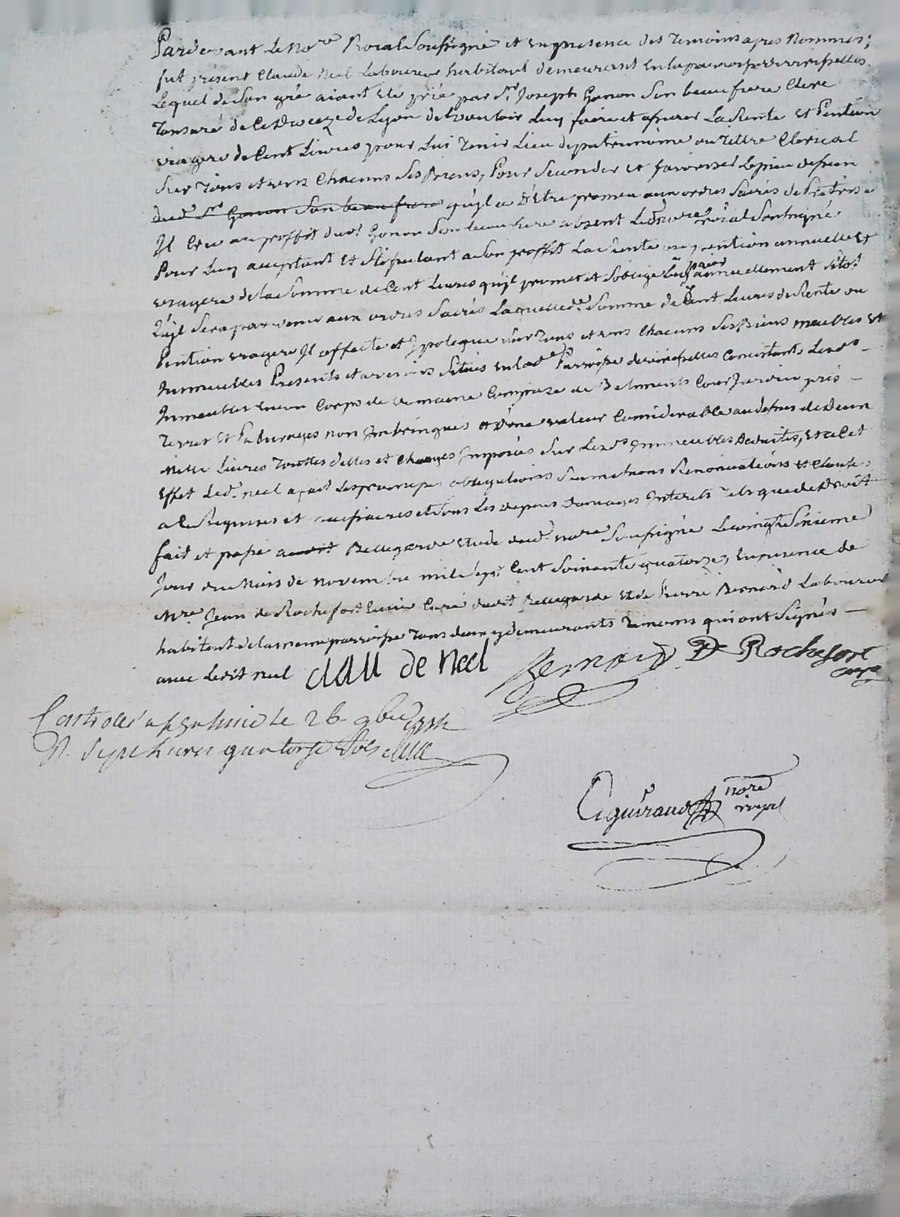 Pardevant Le No.re Roial Soussigné et En presence des Temoins apres Nommés;
fut present Claude Neel Laboureur habitant demeurant En la parroisse de virisselles
Lequel de Son gré aiant eté prié par S.r Joseph Gonon Son beau frere Clerc
Tonsuré de Ce Dioceze de Lyon de Vouloir Luy faire et assurer La Rente et Pention
viagere de Cent Livres pour Lui Tenir Lieu de patrimoine ou Tittre Clerical
Sur Tous et uns Chacuns Ses Biens, Pour Seconder et favoriser Le pieu dessein
dud. S.r Gonon Son beau frere qu'il a d'Etre promeu aux ordres Sacrés de Pretrise
Il Cree au proffit dud. Gonon Son beau frere absent Led. No.re Roial Soussigné
Pour Luy acceptant Et Stipulant a Son proffit La Rente ou pention annuelle Et
viagere de la Somme de Cent Livres qu'il promet et S'oblige Luy paier annuellement Sitot
qu'il Sera parvenu aux ordres Sacrés Laquelle d. Somme de Cent Livres de Rente ou
Pention viagere Il affecte et ypoteque Sur Tous et uns Chacuns Ses Biens meubles Et
Immeubles Presents et avenirs Situés En lad. Parroisse de virisselles Consistants Lesd.
Immeubles En un Corps de Domaine Composé de Batiments Cour Jardin prés
Terres Et Paturages non Imbringués Et d'une valeur Considerable au dessus de Deux
mille Livres Touttes dettes et Charges Imposées Sur Lesd. Immeubles deduites, Et a Cet
Effet Led. neel a fait Les promesses obligations Soumissions Renonciations Et Clauses
a Ce Requises et necessaires et Tous Les depens Domages Interets Tels que de Droit
fait et passé Bellegarde Etude dud. no.re Soussigné Le vingt Sixieme
Jour du Mois de Novembre mil Sept Cent Soixante quatorze, En presence de
M.re Jean de Rochefort Curé dudit Bellegarde Et de Pierre Bernard Laboureur
habitant de la meme parroisse Tous deux y demeurants Temoins qui ont Signés
avec Ledit neel Clau de neel Bernard De Rochefort curé
Controlé a le 26 9bre 1774
R. Sept Livres quatorze Sols
Ciguiraud no.re royal